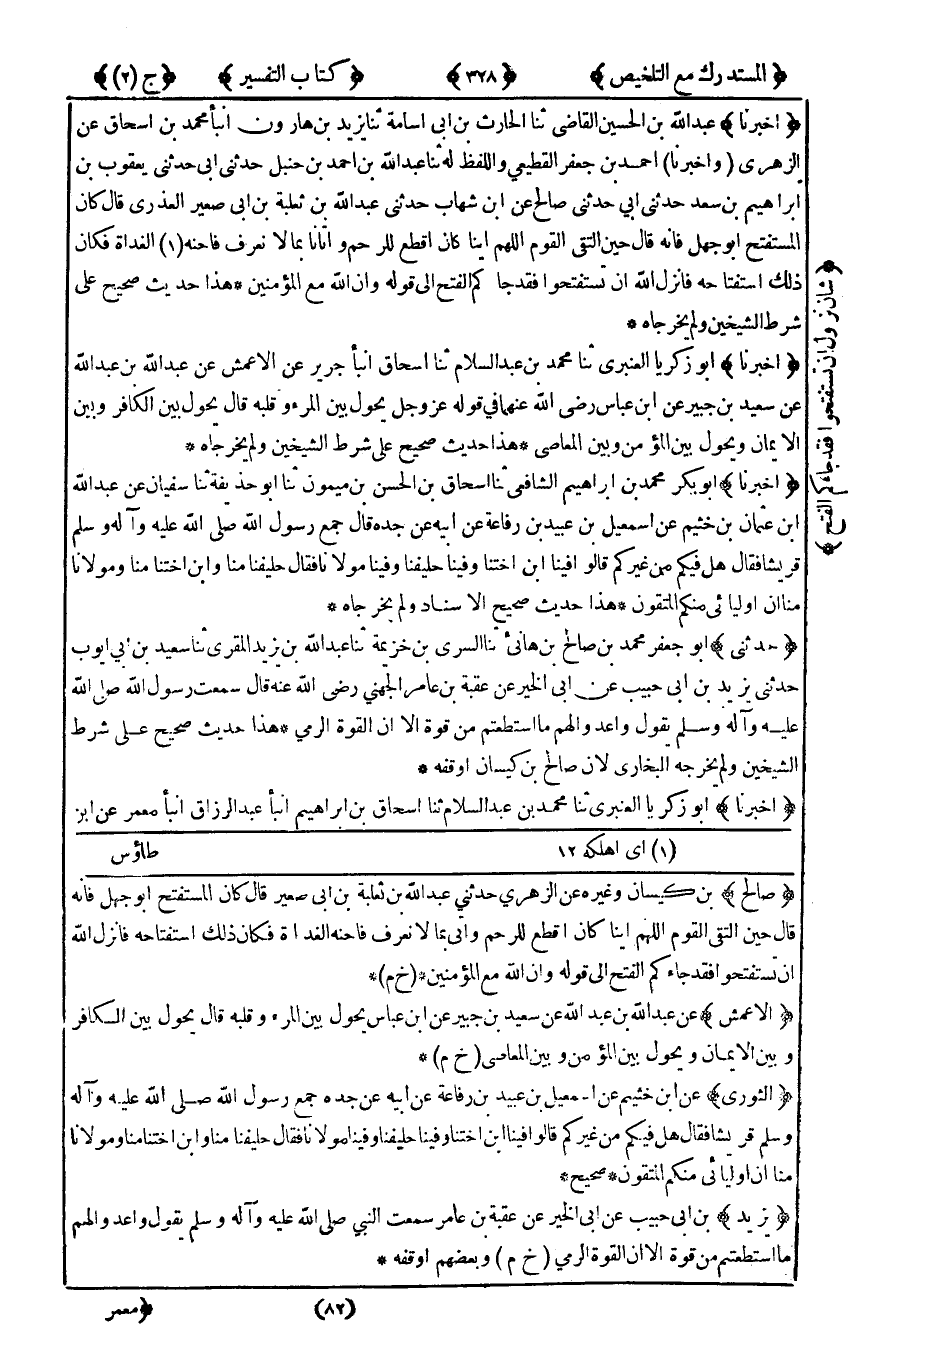 ﴿ المستدرك مع التلخيص ﴾ ﴿ ٣٢٨ ﴾ ﴿ كتاب التفسير ﴾ ﴿ ج (٢) ﴾
﴿ اخبرنا ﴾ عبدالله بن الحسين القاضى ثنا الحارث بن ابى اسامة ثنا يزيد بن هارون انبأ محمد بن اسحاق عن
الزهرى (واخبرنا) احمد بن جعفر القطيعي واللفظ له ثنا عبدالله بن احمد بن حنبل حدثنى ابى حدثنى يعقوب بن
ابراهيم بن سعد حدثنى ابي حدثنى صالح عن ابن شهاب حدثنى عبدالله بن ثعلبة بن ابى صعير العذرى قال كان
المستفتح ابوجهل فانه قال حين التقى القوم اللهم اينا كان اقطع للرحم و اتانا بما لا نعرف فاحنه (١) الغداة فكان
ذلك استفتاحه فانزل الله ان تستفتحوا فقد جا كم الفتح الى قوله وان الله مع المؤمنين * هذا حديث صحيح على
شرط الشيخين ولم يخرجاه *
﴿ اخبرنا ﴾ ابو زكريا العنبرى ثنا محمد بن عبدالسلام ثنا اسحاق انبأ جرير عن الاعمش عن عبدالله بن عبدالله
عن سعيد بن جبير عن ابن عباس رضى الله عنهما فى قوله عز وجل يحول بين المرء و قلبه قال يحول بين الكافر وبين
الايمان ويحول بين المؤمن وبين المعاصى * هذا حديث صحيح على شرط الشيخين ولم يخرجاه *
﴿ اخبرنا ﴾ ابو بكر محمد بن ابراهيم الشافعى ثنا اسحاق بن الحسن بن ميمون ثنا ابو حذيفة ثنا سفيان عن عبدالله
ابن عثمان بن خثيم عن اسمعيل بن عبيد بن رفاعة عن ابيه عن جده قال جمع رسول الله صلى الله عليه وآله وسلم
قريشا فقال هل فيكم من غيركم قالوا فينا ابن اختنا وفينا حليفنا وفينا مولانا فقال حليفنا منا وابن اختنا منا ومولانا
منا ان اوليائى منكم المتقون * هذا حديث صحيح الاسناد ولم يخرجاه *
﴿ حدثنى ﴾ ابو جعفر محمد بن صالح بن هانئ ثنا السرى بن خزيمة ثنا عبدالله بن يزيد المقرى ثنا سعيد بن ابي ايوب
حدثنى يزيد بن ابى حبيب عن ابى الخير عن عقبة بن عامر الجهني رضى الله عنه قال سمعت رسول الله صلى الله
عليه وآله وسلم يقول واعدوا لهم ما استطعتم من قوة الا ان القوة الرمي * هذا حديث صحيح على شرط
الشيخين ولم يخرجه البخارى لان صالح بن كيسان اوقفه *
﴿ اخبرنا ﴾ ابو زكريا العنبرى ثنا محمد بن عبدالسلام ثنا اسحاق بن ابراهيم انبأ عبدالرزاق انبأ معمر عن ابن
(١) اى اهلكه ١٢ طاؤس
﴿ صالح ﴾ بن كيسان وغيره عن الزهري حدثني عبدالله بن ثعلبة بن ابى صعير قال كان المستفتح ابوجهل فانه
قال حين التقى القوم اللهم اينا كان اقطع للرحم وآتى بما لا نعرف فاحنه الغداة فكان ذلك استفتاحه فانزل الله
ان تستفتحوا فقد جاءكم الفتح الى قوله وان الله مع المؤمنين * (خ م) *
﴿ الاعمش ﴾ عن عبدالله بن عبد الله عن سعيد بن جبير عن ابن عباس يحول بين المرء وقلبه قال يحول بين الكافر
و بين الايمان و يحول بين المؤمن و بين المعاصى (خ م) *
﴿ الثورى ﴾ عن ابن خثيم عن اسمعيل بن عبيد بن رفاعة عن ابيه عن جده جمع رسول الله صلى الله عليه وآله
وسلم قريشا فقال هل فيكم من غيركم قالوا فينا ابن اختنا وفينا حليفنا وفينا مولانا فقال حليفنا منا وابن اختنا منا ومولانا
منا ان اوليائى منكم المتقون * صحيح *
﴿ يزيد ﴾ بن ابى حبيب عن ابى الخير عن عقبة بن عامر سمعت النبي صلى الله عليه وآله وسلم يقول واعدوا لهم
ما استطعتم من قوة الا ان القوة الرمي (خ م) وبعضهم اوقفه *
(٨٢) ﴿ معمر
﴿ شان نزول ان تستفتحوا فقد جاءكم الفتح ﴾